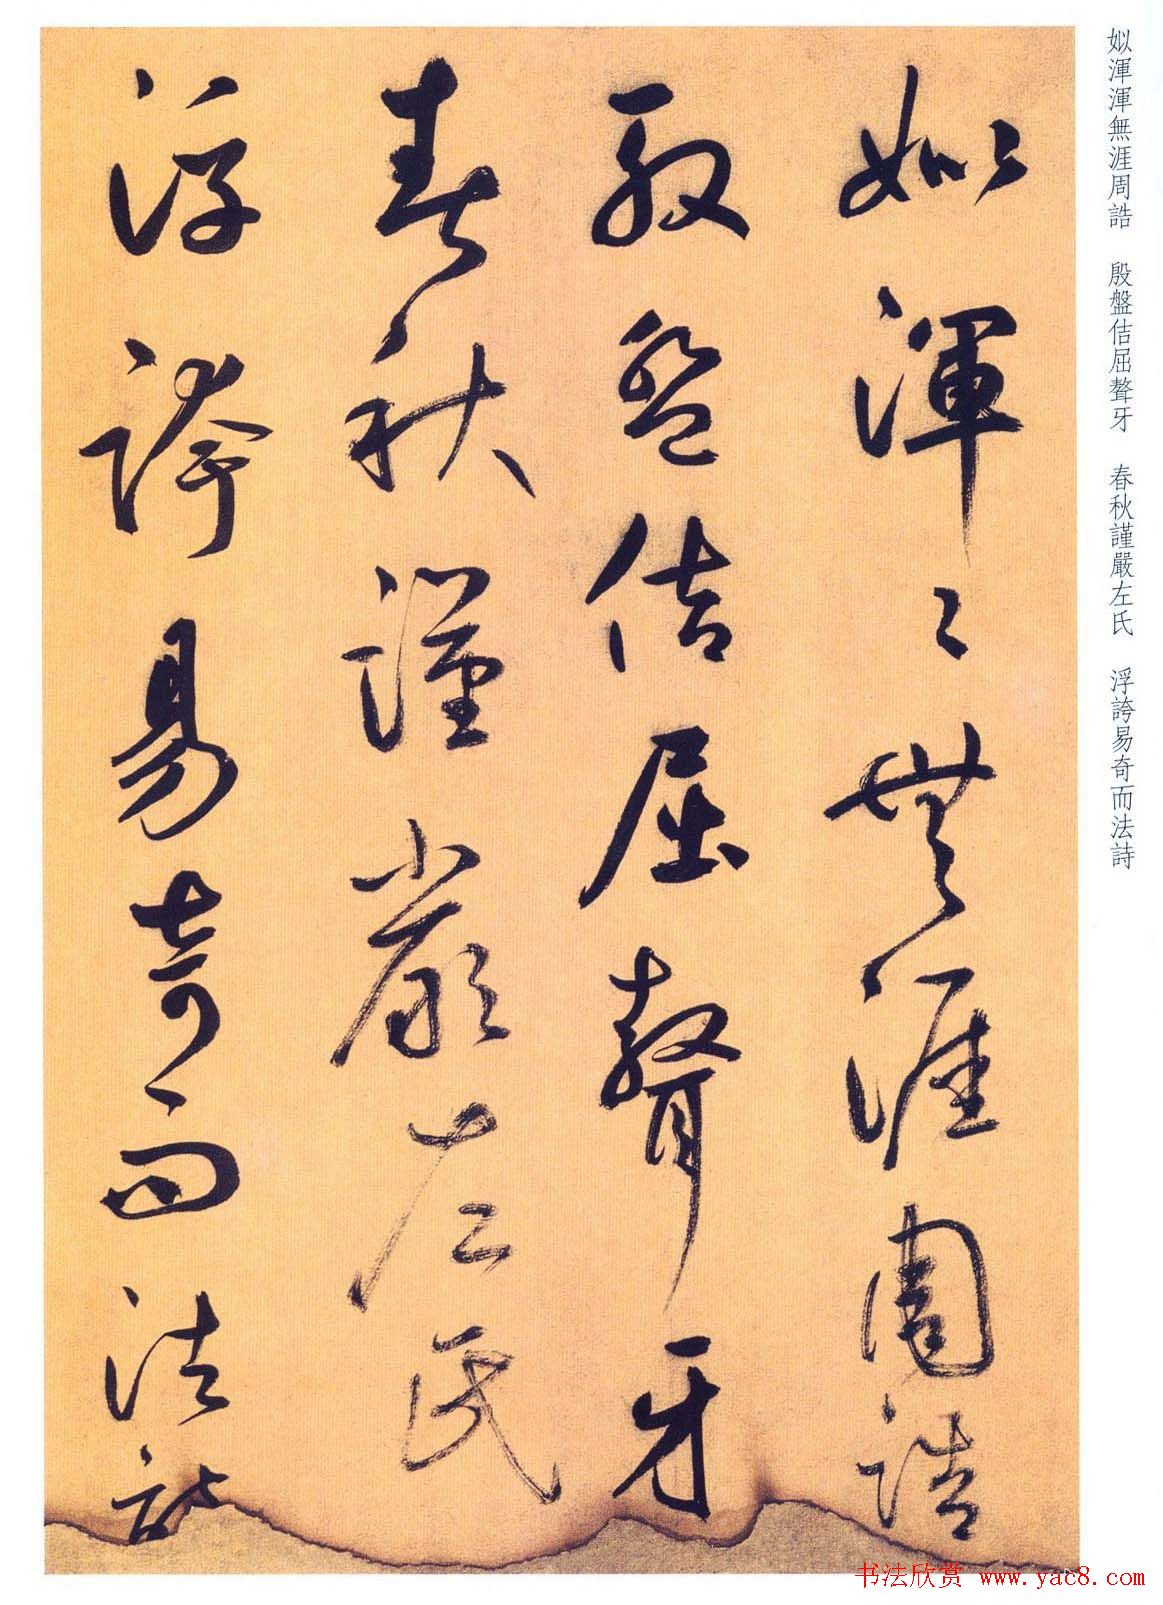 姒渾渾無涯周誥 殷盤佶屈聱牙 春秋謹嚴左氏 浮誇易奇而法詩
姒渾〻無涯周誥
殷盤佶屈聱牙
春秋謹嚴左氏
浮誇易奇而法詩
书法欣赏 www.yac8.com